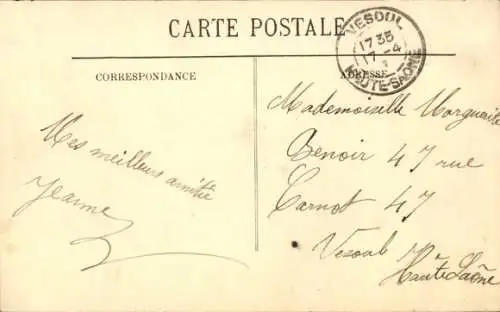 CARTE POSTALE
VESOUL
17 35
17 - 4
HAUTE-SAÔNE
CORRESPONDANCE
ADRESSE
Mes meilleurs amitié
Jeanne
Mademoiselle Marguerite
Benoir 47 rue
Carnot 47
Vesoul
Haute Saône